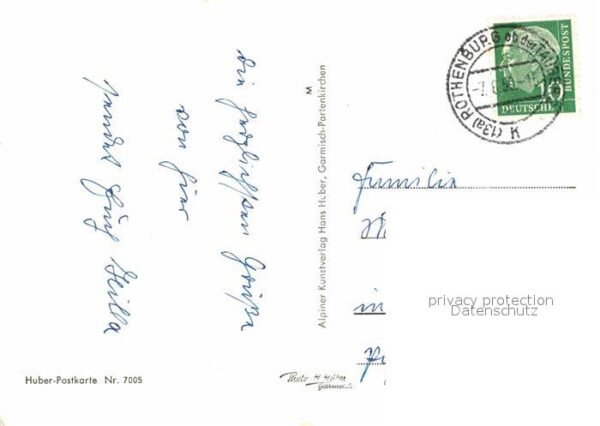 die herzlichsten Grüße
von hier
sendet Euch Hella
M
Alpiner Kunstverlag Hans Huber, Garmisch-Partenkirchen
Huber-Postkarte Nr. 7005
Photo H. Huber
Garmisch
(13a) ROTHENBURG ob der TAUBER
DEUTSCHE BUNDESPOST
10
Familie
in
privacy protection
Datenschutz